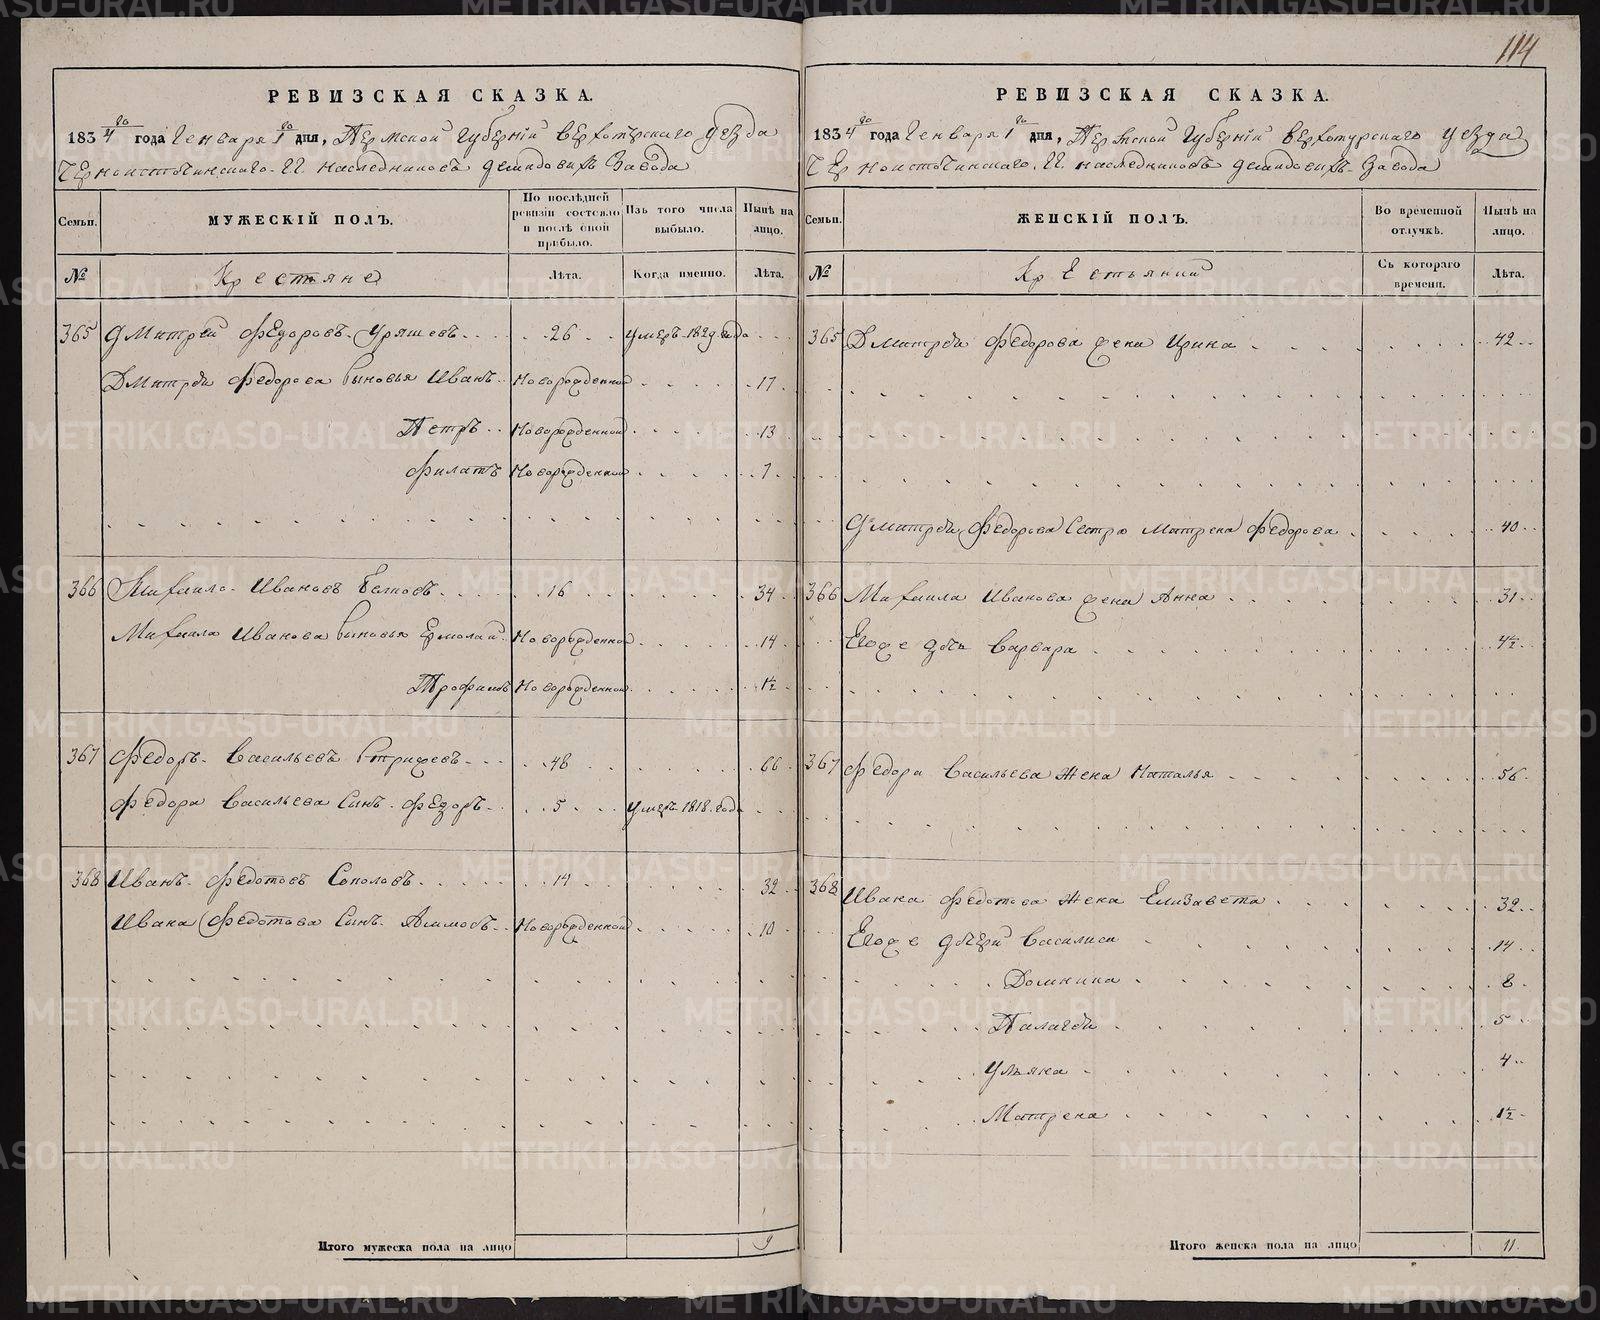 114
РЕВИЗСКАЯ СКАЗКА.
1834го года Генваря 1го дня, Пермской Губернїи Верхотурского уезда
Черноисточинского. ГГ. наследниковъ демидовыхъ Завода
Семьи.
МУЖЕСКІЙ ПОЛЪ.
По послѣдней ревизіи состояло и послѣ оной прибыло.
Изъ того числа выбыло.
Нынѣ на лицо.
№
Крестьяне
Лѣта.
Когда именно.
Лѣта.
365 Дмитрей Федоровъ 26 умеръ 1829 года
Дмитрея Федорова сыновья Иванъ Новорожденной 17
Петръ Новорожденной 13
Филатъ Новорожденной 7
366 Михайло Ивановъ 16 34
Михаила Иванова сыновья Ермолай Новорожденной 14
Трофимъ Новорожденной 1½
367 Федоръ Васильевъ 48 66
Федора Васильева сынъ Федоръ 5 умеръ 1818 года
368 Иванъ Федотовъ Соколовъ 14 32
Ивана Федотова сынъ Новорожденной 10
Итого мужеска пола на лицо 9
РЕВИЗСКАЯ СКАЗКА.
1834го года Генваря 1го дня, Пермской Губернїи Верхотурского уезда
Черноисточинского. ГГ. наследниковъ демидовыхъ Завода
Семьи.
ЖЕНСКІЙ ПОЛЪ.
Во временной отлучкѣ.
Нынѣ на лицо.
№
Съ котораго времени.
Лѣта.
365 Дмитрея Федорова жена Ирина 42
Дмитрея Федорова Сестра Матрена Федорова 40
366 Михаила Иванова жена Анна 31
Егоже дочь Варвара 4½
367 Федора Васильева жена Наталья 56
368 Ивана Федотова жена Елизавета 32
Егоже дочери Василиса 14
Домника 8
Палагея 5
Ульяна 4
Матрена 1½
Итого женска пола на лицо 11
METRIKI.GASO-URAL.RU